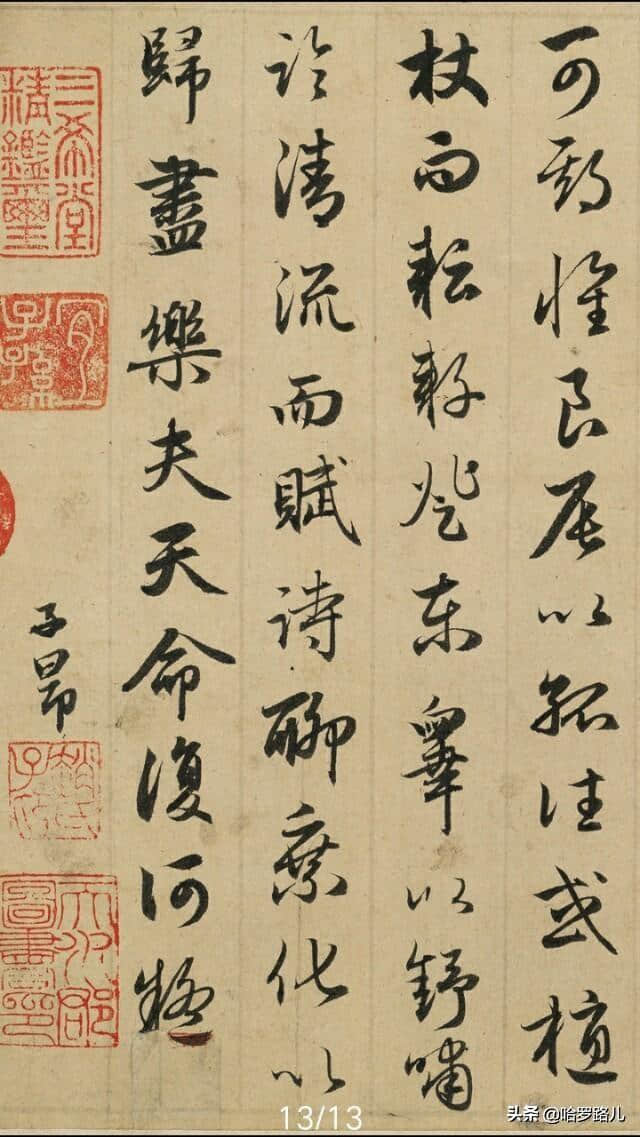 可期懷良辰以孤往或植
杖而耘耔登東皐以舒嘯
臨清流而賦詩聊乘化以
歸盡樂夫天命復何疑
三希堂精鑑璽
宜子孫
子昂
趙氏子昂
天水郡圖書印
13/13
头条 @哈罗路儿